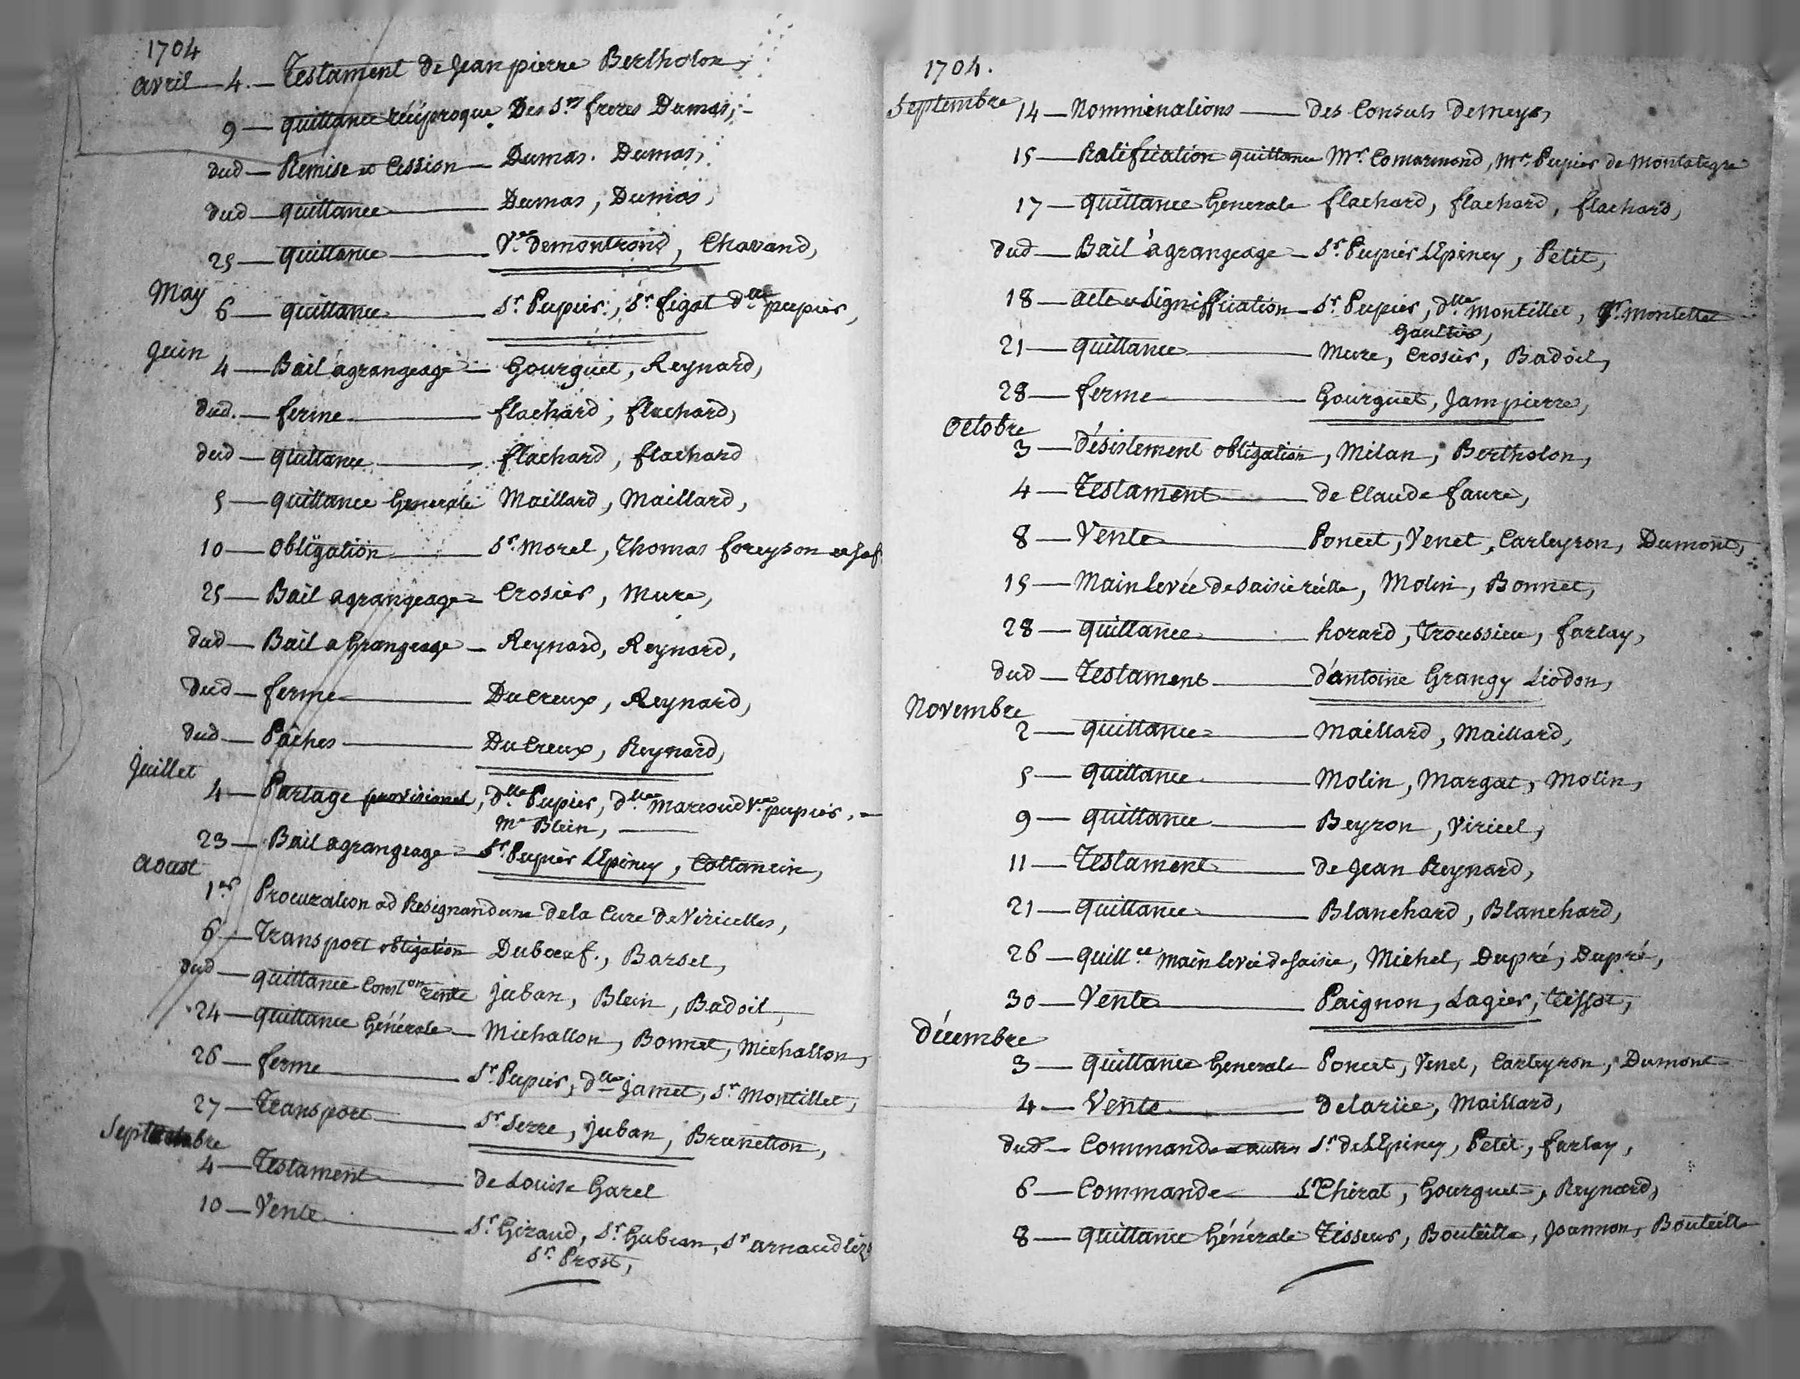 1704
avril — 4. — Testament de Jean pierre Bertholon,
9 — quittance réciproque Des Srs freres Dumas, —
dud — Remise et Cession — Dumas. Dumas,
dud — quittance — Dumas, Dumas,
25 — quittance — Vve Demontrond, Chavand,
May
6 — quittance — Sr Pupier, Sr figat dlle pupier,
Juin
4 — Bail a grangeage — Gourguet, Reynard,
dud. — ferme — flachard, flachard,
dud — quittance — flachard, flachard
5 — quittance Generale Maillard, Maillard,
10 — obligation — Sr Morel, Thomas foreyson et saf
25 — Bail a grangeage — Crosier, Mure,
dud — Bail a Grangeage — Reynard, Reynard,
dud — ferme — Ducreux, Reynard,
dud — Paches — DuCreux, Reynard,
Juillet
4 — Partage provisionel, dlle Pupier, dlle Marcoud Vve pupier, —
Me Blein, —
23 — Bail a grangeage — Sr Pupier LEpiney, Cottancin,
Aoust
1er Procuration ad Resignandum de la Cure de Viricelles,
6 — Transport obligation Duboeuf., Barsel,
dud — quittance Conston rente Juban, Blein, Badoil,
24 — quittance Générale — Michallon, Bonnet, Michallon,
26 — ferme — Sr Pupier, dlle Jamet, Sr Montillet,
27 — Transport — Sr Serre, Juban, Brunetton,
Septembre
4 — Testament — de Louise Garel
10 — Vente — Sr Giraud, Sr Gubian, Sr arnaud
Sr Prost,
1704.
Septembre 14 — Nominations — des Consuls de meys,
15 — Ratification quittance Mr Comarmond, Mr Pupier de Montategre
17 — quittance Generale flachard, flachard, flachard,
dud — Bail a grangeage — Sr Pupier LEpiney, Petit,
18 — acte et Signiffication — Sr Pupier, dlle Montillet, Sr Montillet
Gaultier,
21 — quittance — Mure, Crosier, Badoil,
28 — ferme — Gourguet, Jampierre,
Octobre
3 — Désistement obligation, Milan, Bertholon,
4 — Testament — de Claude faure,
8 — Vente — Poncet, Venet, Carteyron, Dumont,
15 — Main Levée de saisie réelle, Molin, Bonnet,
28 — quittance — horard, Troussieu, farlay,
dud — Testament — d'antoine Grangy Liodon,
Novembre
2 — quittance — Maillard, Maillard,
5 — quittance — Molin, Margat, Molin,
9 — quittance — Beyron, Viricel,
11 — Testament — de Jean Reynard,
21 — quittance — Blanchard, Blanchard,
26 — quill.ce main levée de saisie, Michel, Dupré, Dupré,
30 — Vente — Paignon, Lagier, Tissot,
Décembre
3 — quittance Generale Poncet, Venet, Carteyron, Dumont
4 — Vente — Delarüe, Maillard,
dud — Commande et autres Sr de LEpiney, Petit, farlay,
6 — Commande — Sr Cherat, Gourguet, Reynard,
8 — quittance Générale Tisseur, Bouteille, Joannon, Bouteille